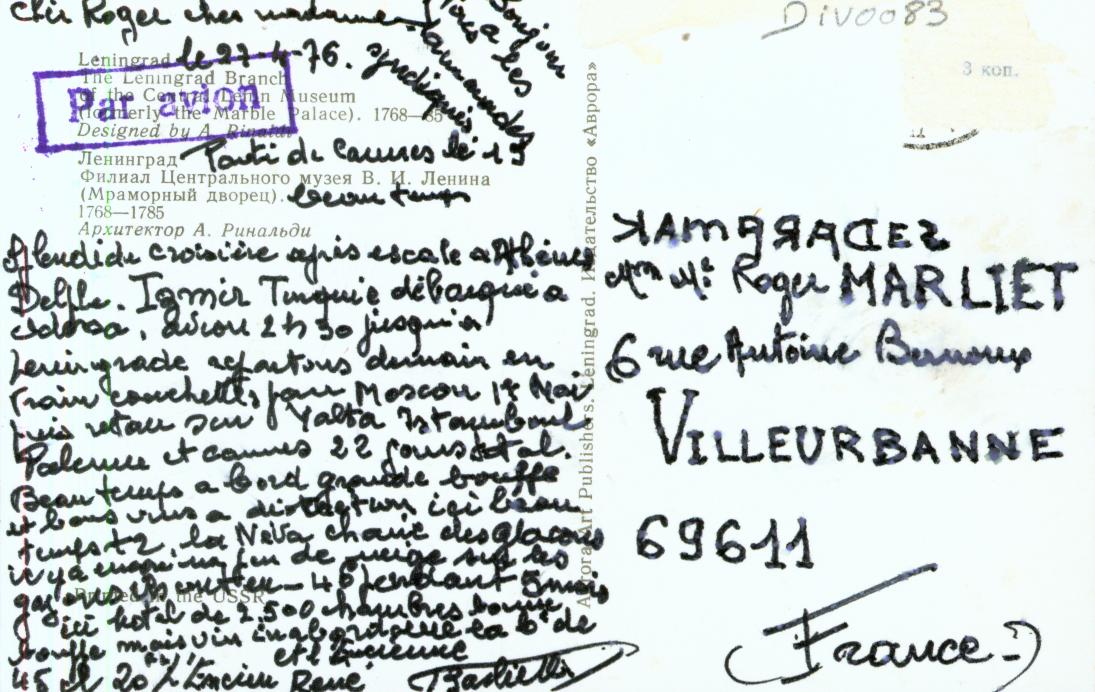 Cher Roger cher madame
Bonjour
à les
Leningrad le 27-4-76.
The Leningrad Branch
of the Central Lenin Museum
(formerly the Marble Palace). 1768—85
Designed by A. Rinaldi
Par avion
Ленинград Parti de Cannes le 19
Филиал Центрального музея В. И. Ленина
(Мраморный дворец). beau temps
1768—1785
Архитектор А. Ринальди
Splendide croisière après escale a Athènes
Delphe. Izmir Turquie débarqué a
odessa, avion 2 h 30 jusqu'a
Leningrade repartons demain en
train couchettes pour Moscou 1r Mai
puis retour sur Yalta Istamboul
Palerme et cannes 22 jours total.
Beau temps a bord grande bouffe
et bons vins a discretion ici beau
temps +2. la Néva charie des glacons
il y a encore un peu de neige sur les
gazons -40 pendant 5 mois
ici hotel de 2.500 chambres bonne
bouffe mais vin inabordable la bt de
45 et 20 L'Ancien René
et Lucienne
Printed in the USSR
Aurora Art Publishers. Leningrad. Издательство «Аврора»
DIV0083
3 коп.
KAMARADES
Mme Mr Roger MARLIET
6 rue Antoine
VILLEURBANNE
69611
(France)